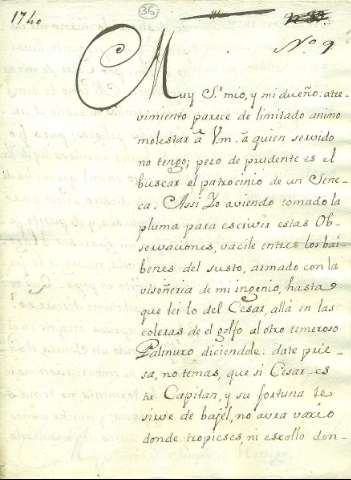 1740
36
Nº 9
Muy S.r mio, y mi dueño: atre-
vimiento parece de limitado animo
molestar â Vm. â quien servido
no tengo; pero de prudente es el
buscar el patrocinio de un Sene-
ca. Assi Yo aviendo tomado la
pluma para escivir estas Ob-
servaciones, vacile entre los bai-
benes del susto, armado con la
visoñeria de mi ingenio, hasta
que lei lo del Cesar, allá en las
coleras de el golfo al otro temeroso
Palinuro diciendole: date prie-
sa, no temas, que si Cesar es
tu Capitan, y su fortuna te
sirve de bajél, no avra vaxio
donde tropieses, ni escollo don-